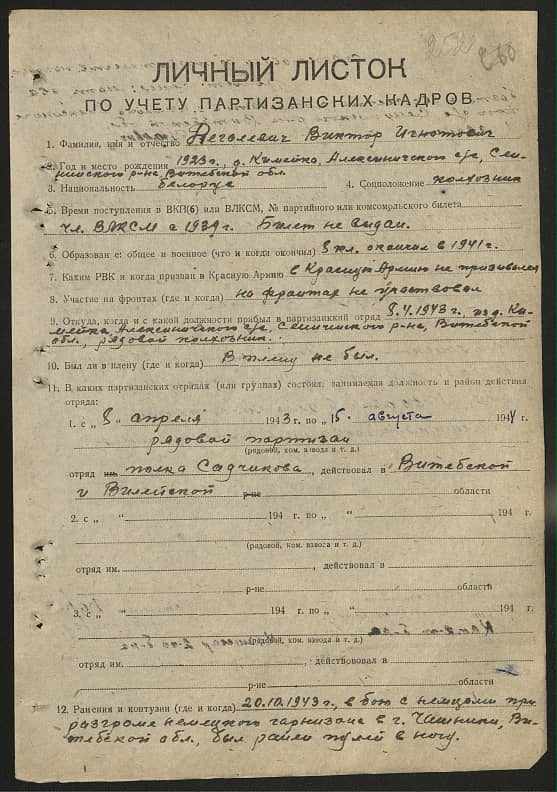 260
ЛИЧНЫЙ ЛИСТОК
ПО УЧЕТУ ПАРТИЗАНСКИХ КАДРОВ
1. Фамилия, имя и отчество Виктор Игнатович
2. Год и место рождения 1923г., д. Кимейка, Алексиничского с/с, Сен-
нинского р-на Витебской обл.
3. Национальность белорус 4. Соцположение колхозник
5. Время поступления в ВКП(б) или ВЛКСМ, № партийного или комсомольского билета
чл. ВЛКСМ с 1939г. Билет не выдан.
6. Образован е: общее и военное (что и когда окончил) 8 кл. окончил в 1941г.
7. Каким РВК и когда призван в Красную Армию в Красную Армию не призывался
8. Участие на фронтах (где и когда) на фронтах не участвовал
9. Откуда, когда и с какой должности прибыл в партизанский отряд 8.4.1943г., из д. Ки-
мейка, Алексиничского с/с, Сеннинского р-на, Витебской
обл., рядовой колхозник.
10. Был ли в плену (где и когда) В плену не был.
11. В каких партизанских отрядах (или группах) состоял, занимаемая должность и район действия
отряда:
1. с „ 8 “ апреля 1943 г. по „ 15 “ августа 1944 г.
рядовой партизан
(рядовой, ком. взвода и т. д.)
отряд им. полка Садчикова, действовал в Витебской
и Вилейской р-не области
2. с „ “ 194 г. по „ “ 194 г.
(рядовой, ком. взвода и т. д.)
отряд им. , действовал в
р-не области
3. с „ “ 194 г. по „ “ 194 г.
(рядовой, ком. взвода и т. д.)
отряд им. , действовал в
р-не области
12. Ранения и контузии (где и когда) 20.10.1943г., в бою с немцами при
разгроме немецкого гарнизона в г. Чашники, Ви-
тебской обл., был ранен пулей в ногу.